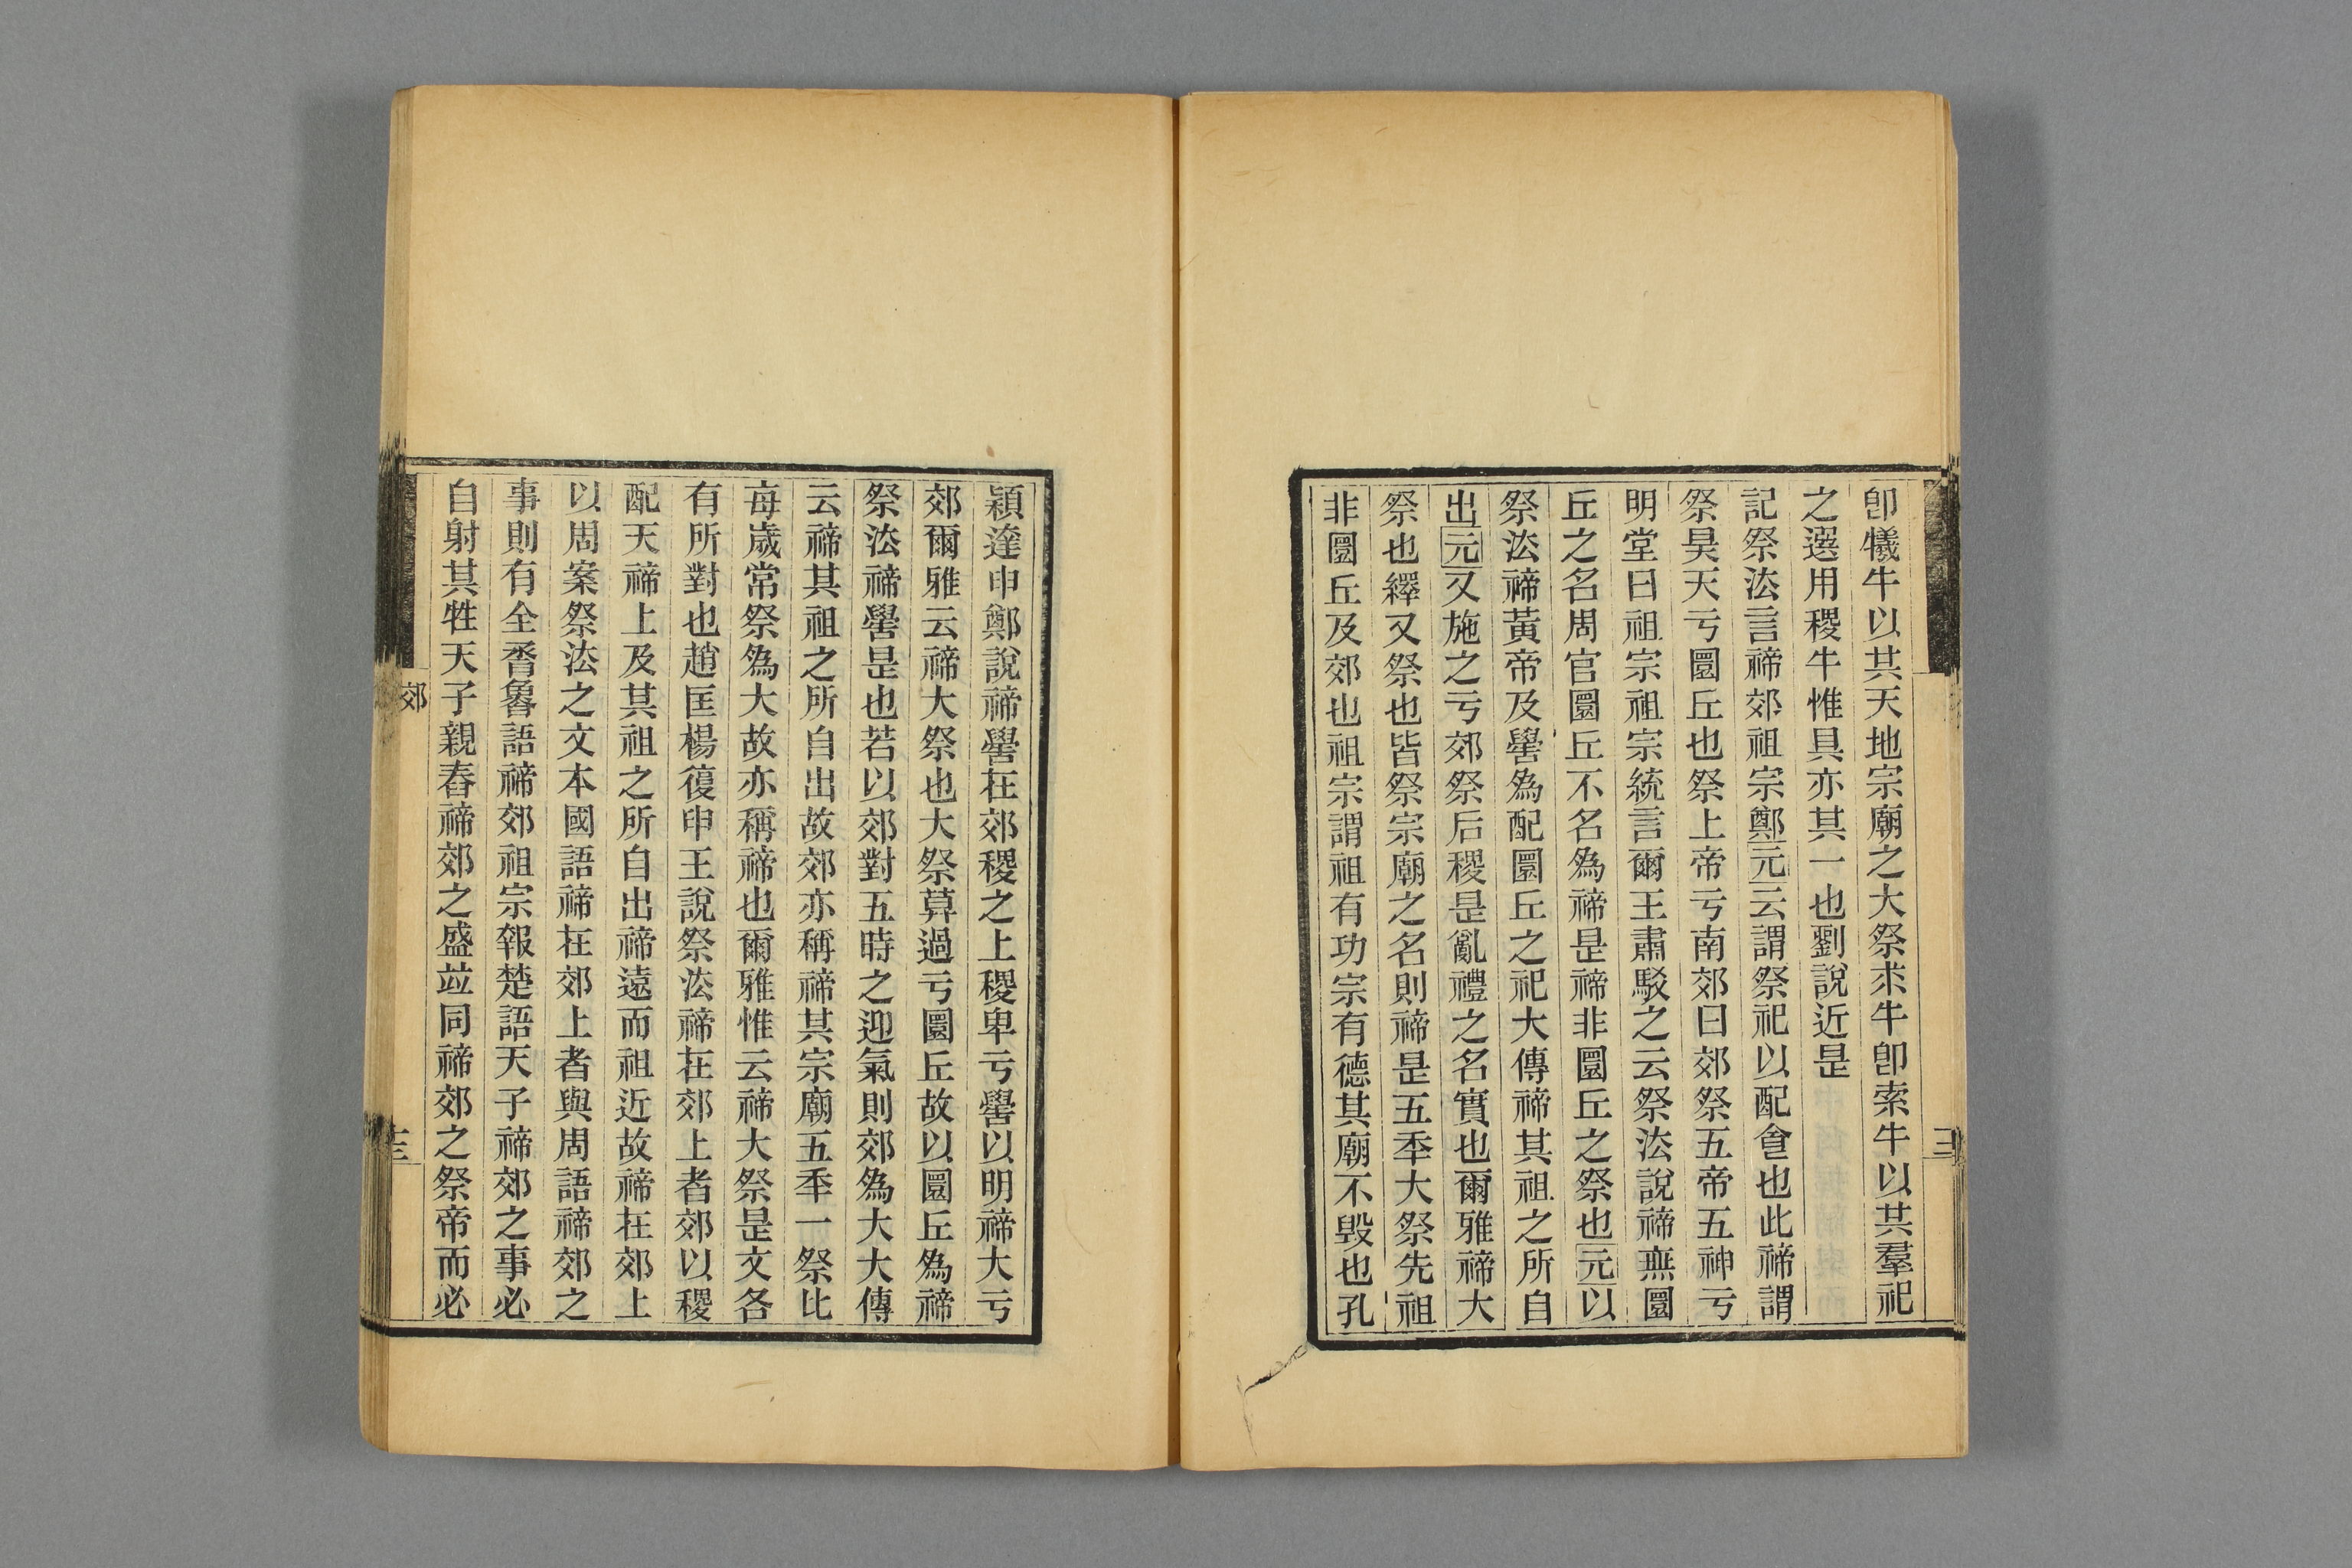 卽犧牛以其天地宗廟之大祭求牛卽索牛以其羣祀
之選用稷牛惟具亦其一也劉說近是
記祭法言禘郊祖宗鄭元云謂祭祀以配𩚁也此禘謂
祭昊天亏圜丘也祭上帝亏南郊曰郊祭五帝五神亏
明堂曰祖宗祖宗統言爾王肅駁之云祭法說禘無圜
丘之名周官圜丘不名為禘是禘非圜丘之祭也元以
祭法禘黃帝及嚳為配圜丘之祀大傳禘其祖之所自
出元又施之亏郊祭后稷是亂禮之名實也爾雅禘大
祭也繹又祭也皆祭宗廟之名則禘是五秊大祭先祖
非圜丘及郊也祖宗謂祖有功宗有德其廟不毀也孔
穎達申鄭說禘嚳在郊稷之上稷卑亏嚳以明禘大亏
郊爾雅云禘大祭也大祭莫過亏圜丘故以圜丘為禘
祭法禘嚳是也若以郊對五時之迎氣則郊為大大傳
云禘其祖之所自出故郊亦稱禘其宗廟五秊一祭比
每歲常祭為大故亦稱禘也爾雅惟云禘大祭是文各
有所對也趙匡楊復申王說祭法禘在郊上者郊以稷
配天禘上及其祖之所自出禘遠而祖近故禘在郊上
以周案祭法之文本國語禘在郊上者與周語禘郊之
事則有全脀魯語禘郊祖宗報楚語天子禘郊之事必
自射其牲天子親舂禘郊之盛竝同禘郊之祭帝而必
郊